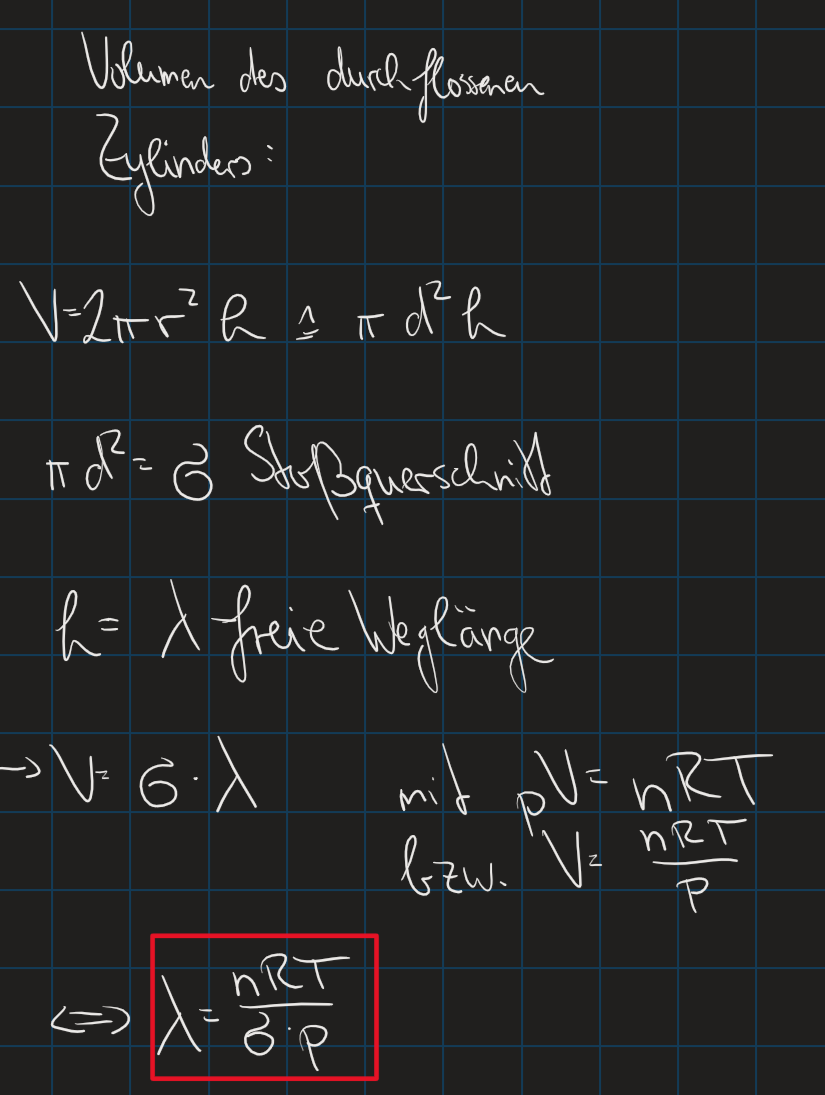 Volumen des durchflossenen
Zylinders:
V=2πr² h ≙ π d² h
π d² = σ Stoßquerschnitt
h = λ freie Weglänge
→ V = σ · λ mit pV = nRT
bzw. V = nRT/p
⇔ λ = nRT/σ·p